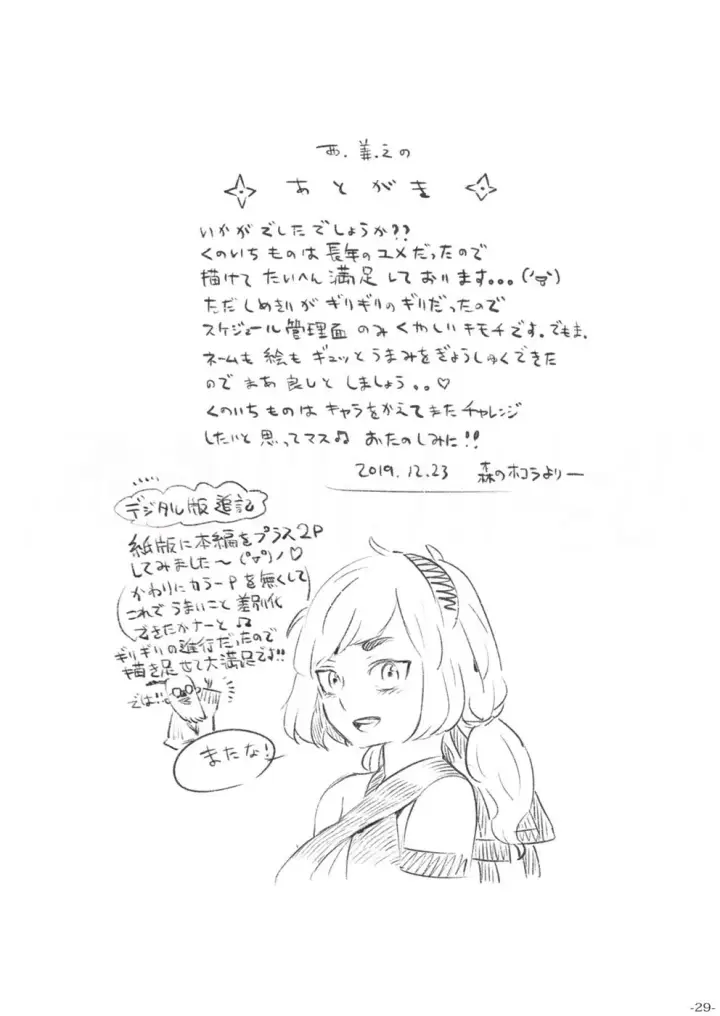 西.義.之の
あとがき
いかがでしたでしょうか??
くのいちものは長年のユメだったので
描けてたいへん満足しております。。。
ただしめきりがギリギリのギリだったので
スケジュール管理面のみくやしいキモチです。でもま、
ネームも絵もギュッとうまみをぎょうしゅくできた
のでまあ良しとしましょう。。♡
くのいちものはキャラをかえてまたチャレンジ
したいと思ってマス♫ おたのしみに!!
2019.12.23 森のホコラよりー
デジタル版追記
紙版に本編をプラス2P
してみました〜(°▽°)ノ♡
(かわりにカラーPを無くして
これでうまいこと差別化
できたかナーと♫)
ギリギリの進行だったので
描き足せて大満足です!!
では!!
またな!
-29-